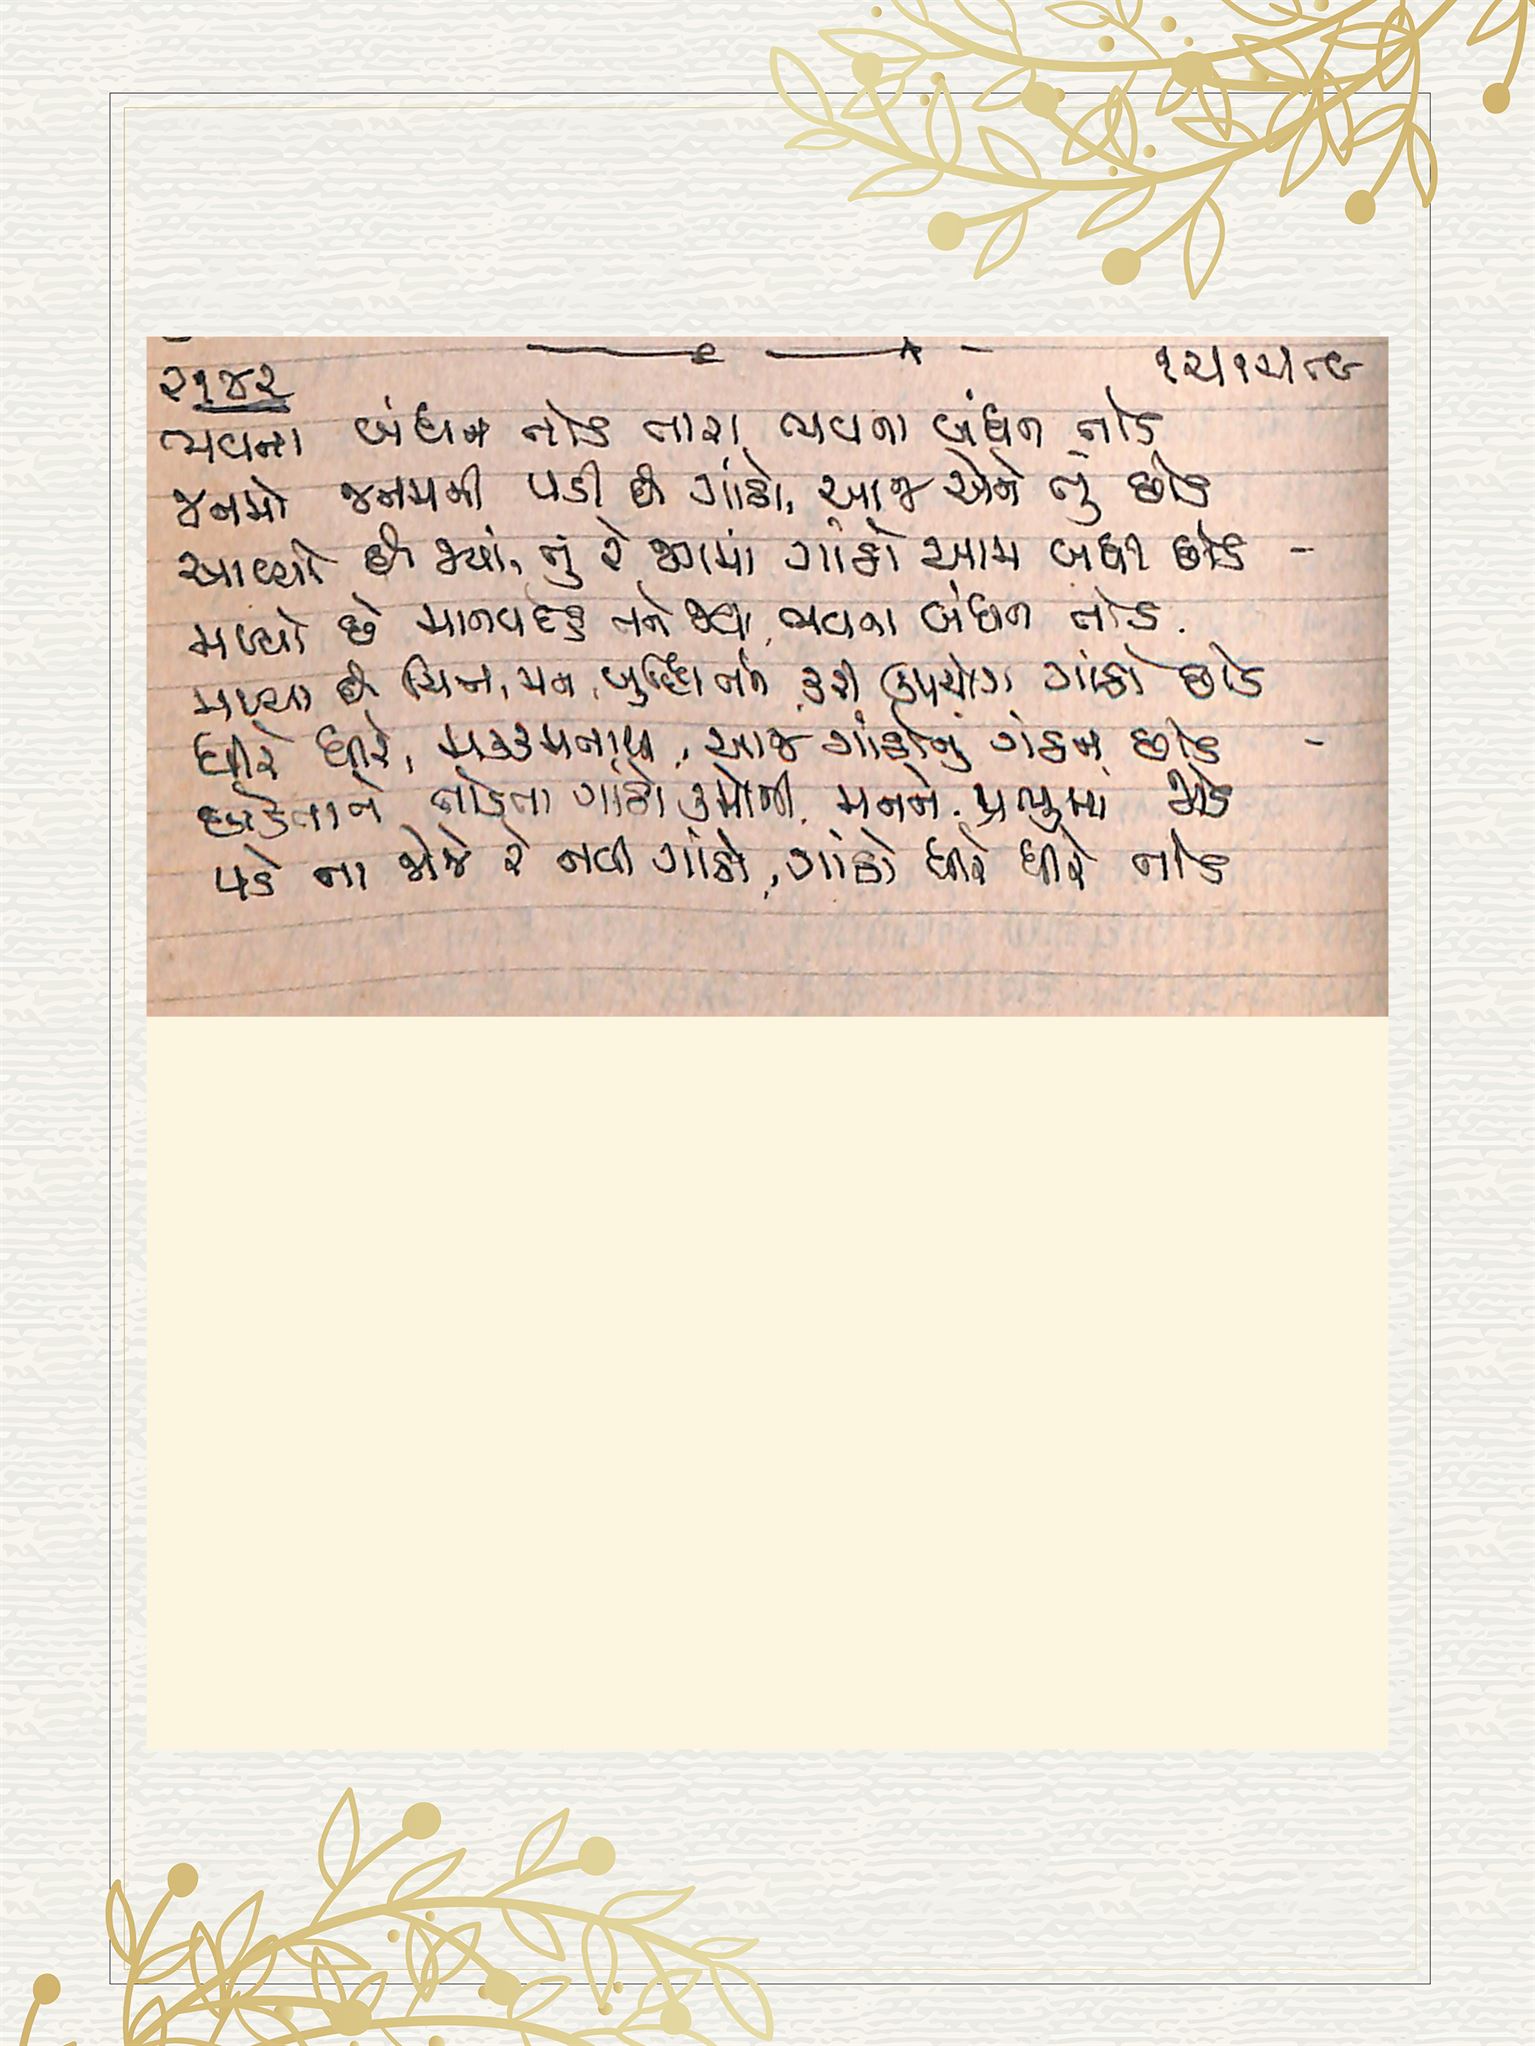 ૨૧૪૨
ભવના બંધન તોડ તારા, ભવના બંધન તોડ
જનમો જનમની પડી છે ગાંઠો, આજ એને તું છોડ
આવ્યો છે જ્યાં, તું રે જગમાં ગાંઠો આમ બધી છોડ -
મળ્યો છે માનવદેહ તને જ્યાં, ભવના બંધન તોડ.
મળ્યા છે ચિત્ત, મન, બુદ્ધિ કરી ઉપયોગ ગાંઠો છોડ
ધીરે ધીરે, મક્કમતાથી, આજ ગાંઠોનું ગઠન છોડ -
તોડતા ગાંઠો કર્મોની, મનને પ્રભુમાં જોડ
પડે ના જોજે રે નવી ગાંઠો, ગાંઠો ધીરે ધીરે તોડ